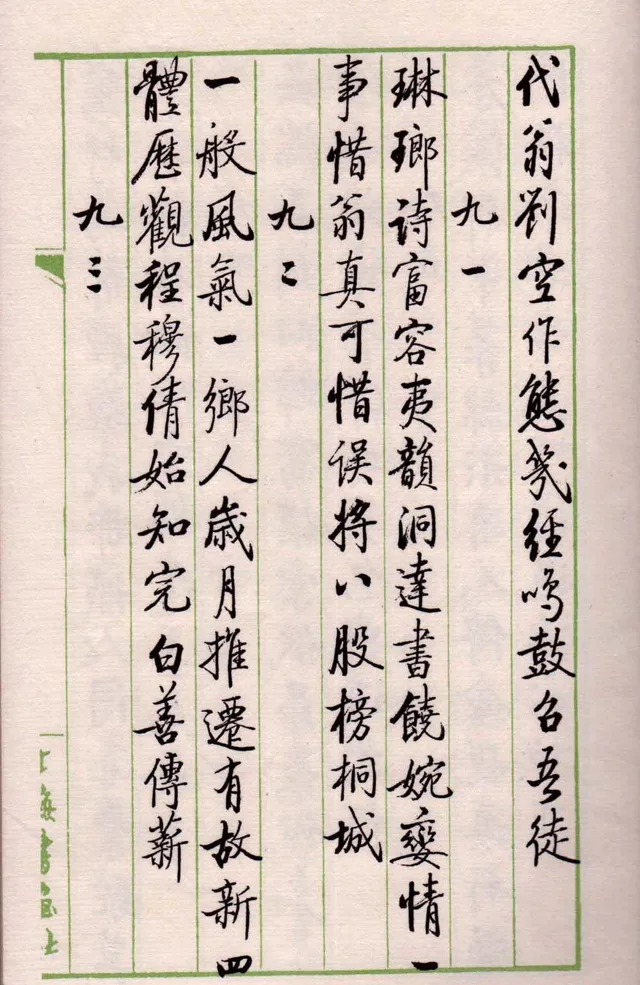 代翁劉空作態幾經鳴鼓召吾徒
九一
琳瑯詩富容夷韻洞達書饒婉孌情一
事惜翁真可惜误將八股榜桐城
九二
一般風氣一鄉人歲月推遷有故新四
體歷觀程穆倩始知完白善傳薪
九三
上海書畫社